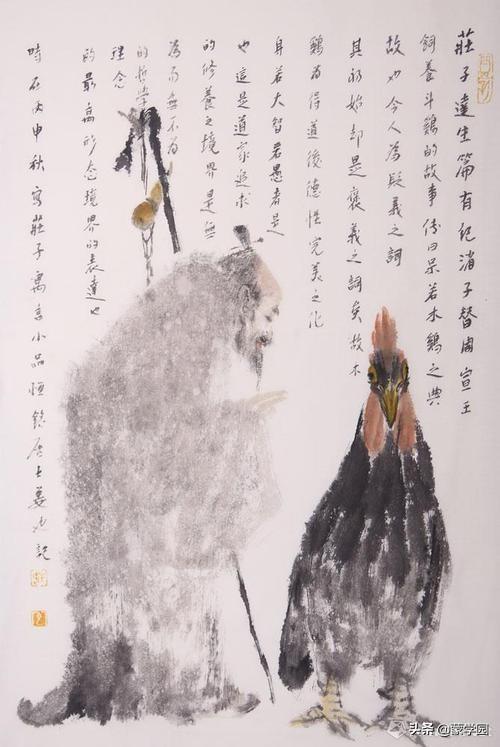 莊子達生篇有紀消子替周宣王
飼養斗鷄的故事傳曰呆若木鷄之典
故也今人為貶義之詞
其初始却是褒義之詞矣故木
鷄為得道後德性完美之化
身若大智若愚者是
也這是道家追求
的修養之境界是無
為而無不為
的哲學
理念
的最高形态境界的表達也
時在丙申秋寫莊子寓言小品恒銘居士姜記
头条 @蒙学园